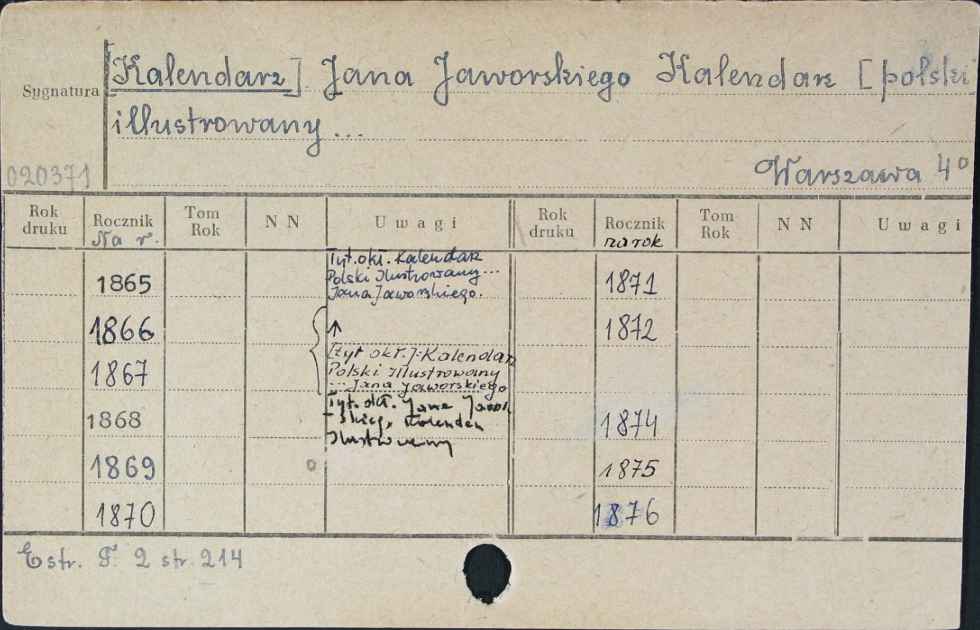 Sygnatura
[Kalendarz] Jana Jaworskiego Kalendarz [polski
illustrowany ...
020371
Warszawa 4°
Rok druku Rocznik Tom Rok N N Uwagi Rok druku Rocznik Tom Rok N N Uwagi
Na r. na rok
Tyt. okł. Kalendarz
1865 Polski Ilustrowany... 1871
Jana Jaworskiego.
1866 ↑ 1872
[tyt okł.]: Kalendarz
1867 Polski Illustrowany
... Jana Jaworskiego
1868 Tyt. okł. Jana 1874
Ilustrowany
1869 1875
1870 1876
Estr. T. 2 str. 214